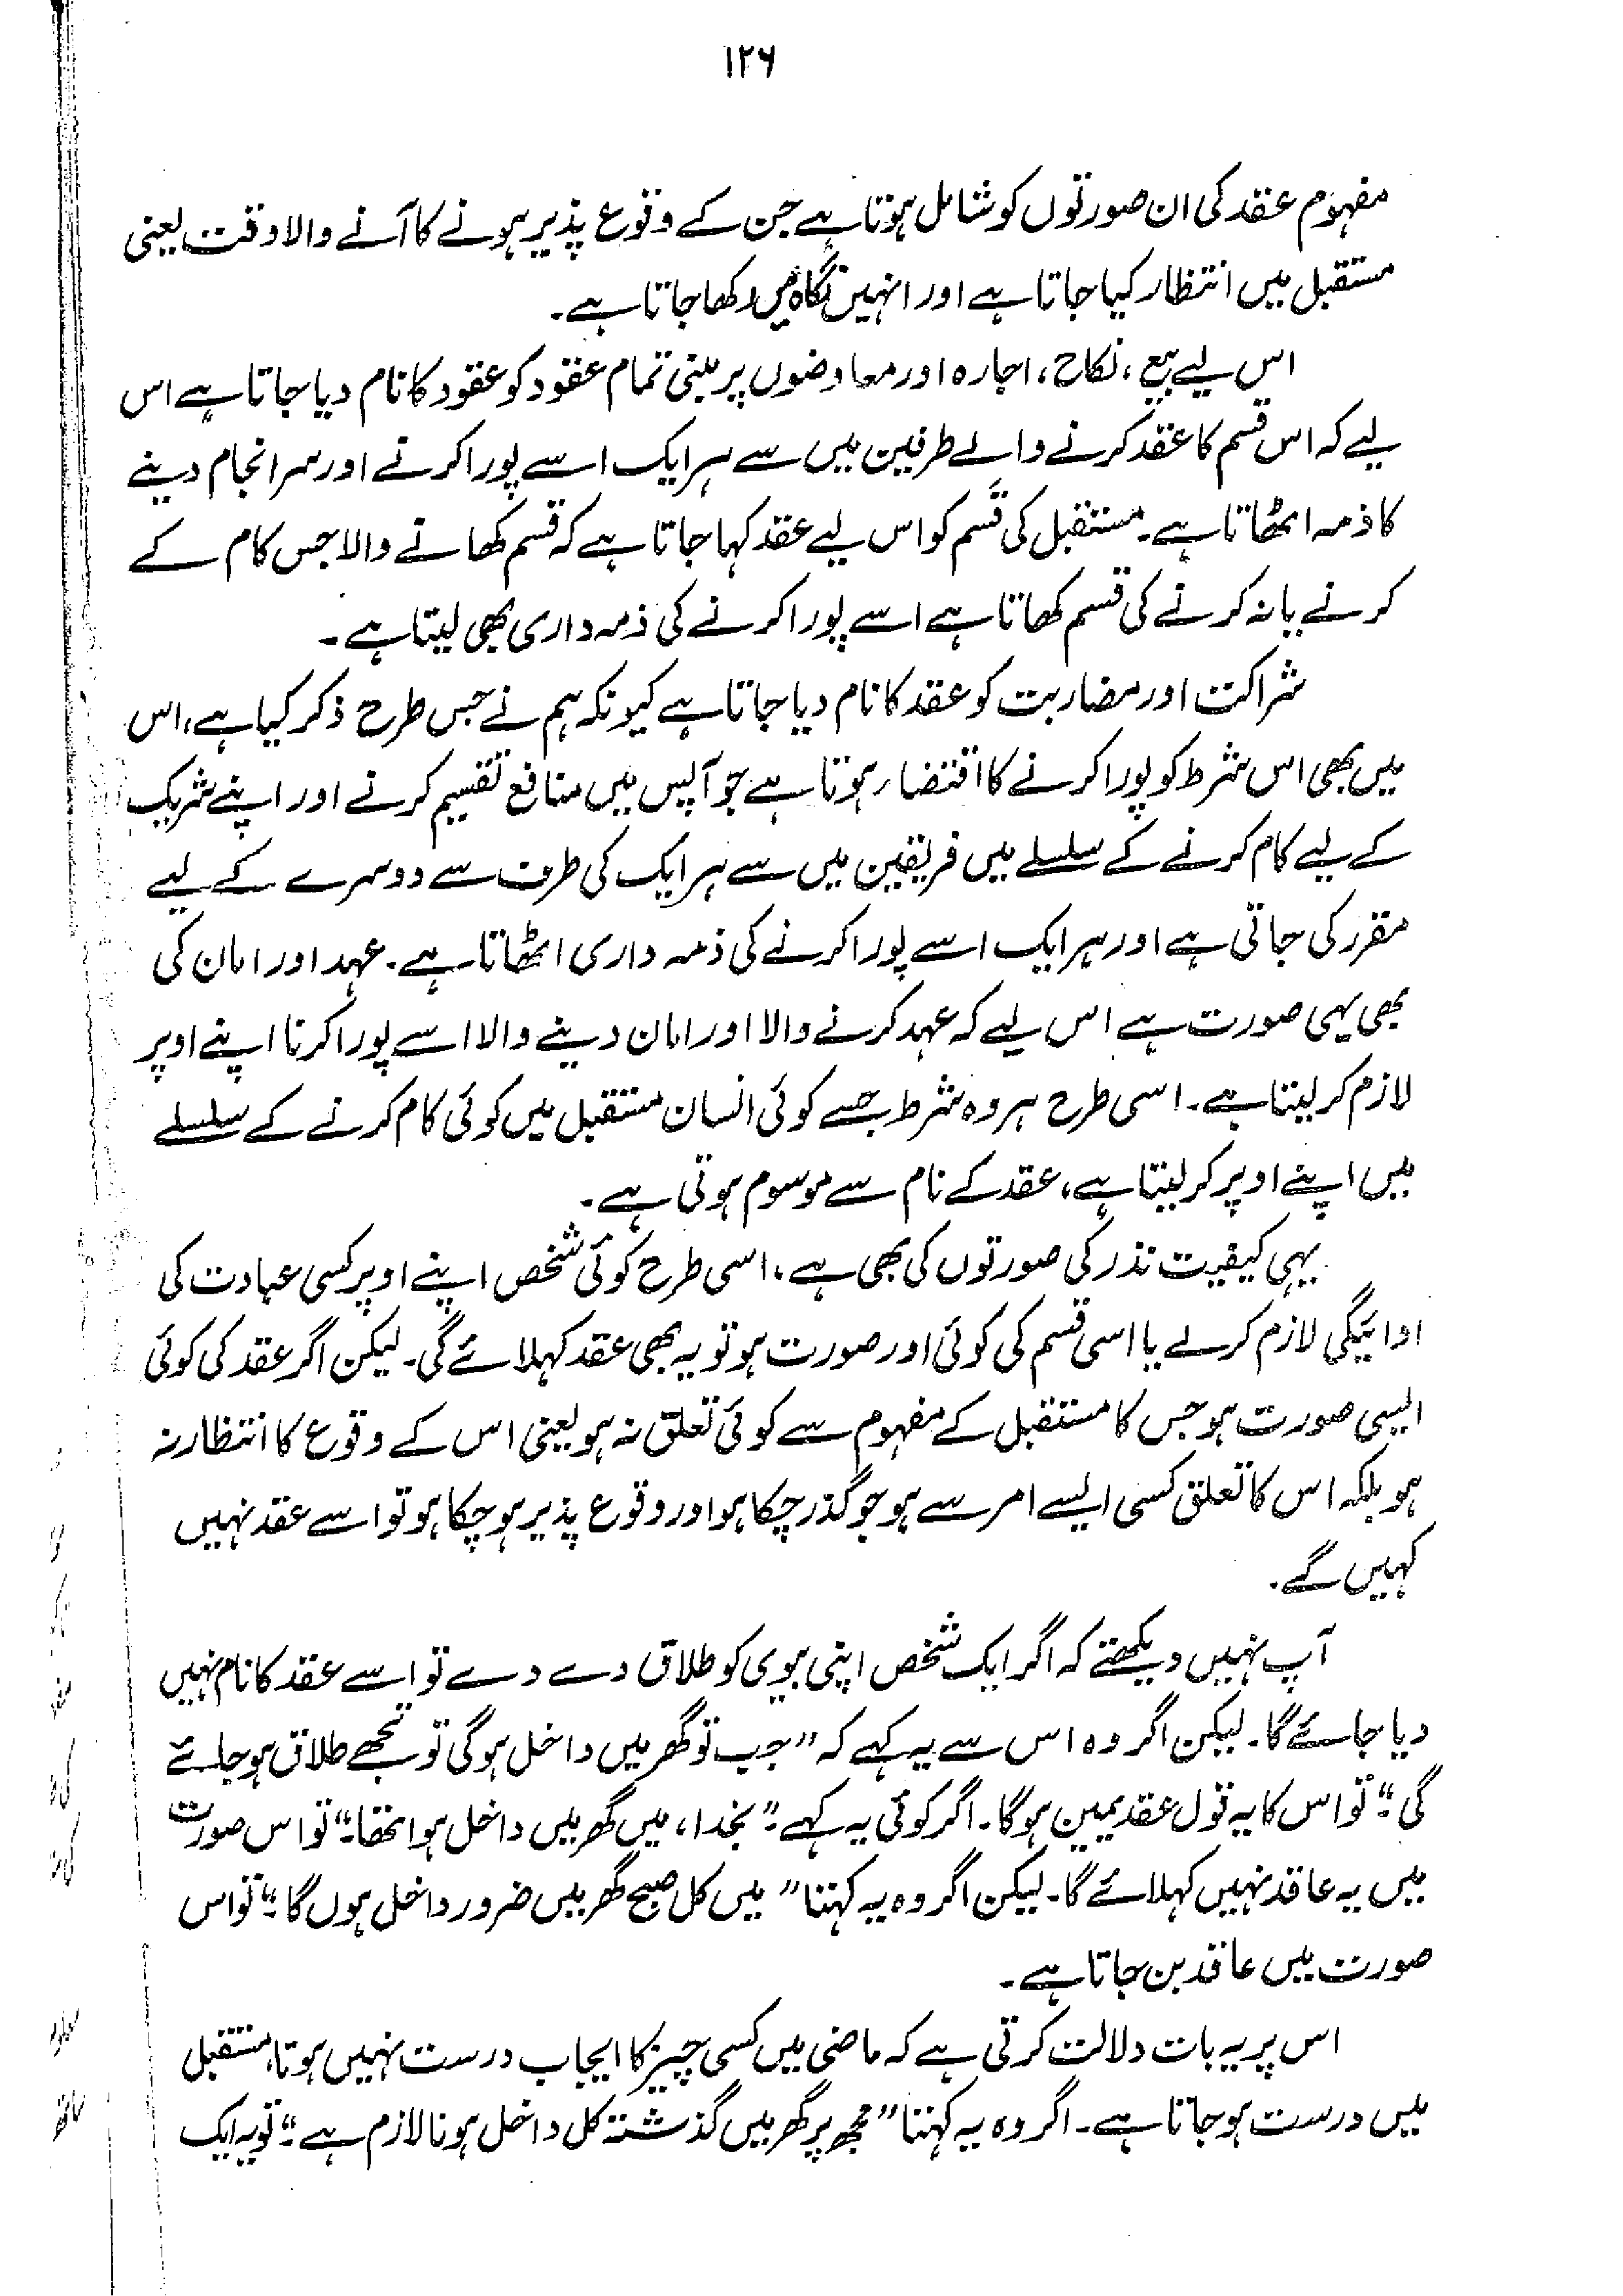 ۱۲۶
مفہوم عقد کی ان صورتوں کو شامل ہوتا ہے جن کے وقوع پذیر ہونے کا آنے والا وقت یعنی
مستقبل میں انتظار کیا جاتا ہے اور انہیں نگاہ میں رکھا جاتا ہے۔
اس لیے بیع، نکاح، اجارہ اور معاوضوں پر مبنی تمام عقود کو عقود کا نام دیا جاتا ہے اس
لیے کہ اس قسم کا عقد کرنے والے طرفین میں سے ہر ایک اسے پورا کرنے اور سرانجام دینے
کا ذمہ اٹھاتا ہے۔ مستقبل کی قسم کو اس لیے عقد کہا جاتا ہے کہ قسم کھانے والا جس کام کے
کرنے یا نہ کرنے کی قسم کھاتا ہے اسے پورا کرنے کی ذمہ داری بھی لیتا ہے۔
شراکت اور مضاربت کو عقد کا نام دیا جاتا ہے کیونکہ ہم نے جس طرح ذکر کیا ہے، اس
میں بھی اس شرط کو پورا کرنے کا اقتضاء ہوتا ہے جو آپس میں منافع تقسیم کرنے اور اپنے شریک
کے لیے کام کرنے کے سلسلے میں فریقین میں سے ہر ایک کی طرف سے دوسرے کے لیے
مقرر کی جاتی ہے اور ہر ایک اسے پورا کرنے کی ذمہ داری اٹھاتا ہے۔ عہد اور امان کی
بھی یہی صورت ہے اس لیے کہ عہد کرنے والا اور امان دینے والا اسے پورا کرنا اپنے اوپر
لازم کر لیتا ہے۔ اسی طرح ہر وہ شرط جسے کوئی انسان مستقبل میں کوئی کام کرنے کے سلسلے
میں اپنے اوپر کر لیتا ہے، عقد کے نام سے موسوم ہوتی ہے۔
یہی کیفیت نذر کی صورتوں کی بھی ہے، اسی طرح کوئی شخص اپنے اوپر کسی عبادت کی
ادائیگی لازم کر لے یا اسی قسم کی کوئی اور صورت ہو تو یہ بھی عقد کہلائے گی۔ لیکن اگر عقد کی کوئی
ایسی صورت ہو جس کا مستقبل کے مفہوم سے کوئی تعلق نہ ہو یعنی اس کے وقوع کا انتظار نہ
ہو بلکہ اس کا تعلق کسی ایسے امر سے ہو جو گذر چکا ہو اور وقوع پذیر ہو چکا ہو تو اسے عقد نہیں
کہیں گے۔
آپ نہیں دیکھتے کہ اگر ایک شخص اپنی بیوی کو طلاق دے دے تو اسے عقد کا نام نہیں
دیا جائے گا۔ لیکن اگر وہ اس سے یہ کہے کہ ”جب تو گھر میں داخل ہوگی تو تجھے طلاق ہو جائے
گی۔“ تو اس کا یہ قول عقد یمین ہوگا۔ اگر کوئی یہ کہے۔ ”بخدا، میں گھر میں داخل ہوا تھا۔“ تو اس صورت
میں یہ عاقد نہیں کہلائے گا۔ لیکن اگر وہ یہ کہتا ”میں کل صبح گھر میں ضرور داخل ہوں گا۔“ تو اس
صورت میں عاقد بن جاتا ہے۔
اس پر یہ بات دلالت کرتی ہے کہ ماضی میں کسی چیز کا ایجاب درست نہیں ہوتا، مستقبل
میں درست ہو جاتا ہے۔ اگر وہ یہ کہتا ”مجھ پر گھر میں گذشتہ کل داخل ہونا لازم ہے۔“ تو یہ ایک